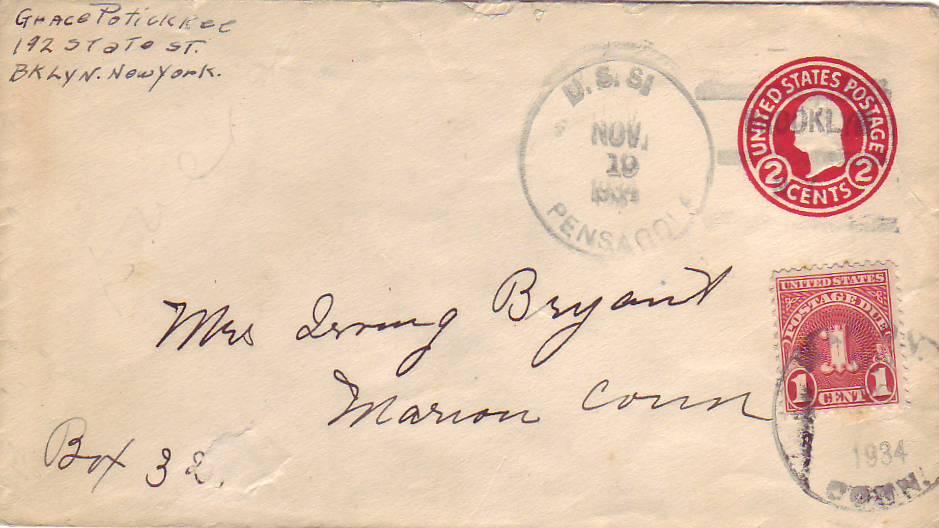 Grace Potickkee
192 State St.
BKLYN. New York.
U. S. S.
NOV.
19
1934
PENSACOLA
BROOKLYN
UNITED STATES POSTAGE
2 CENTS 2
UNITED STATES
POSTAGE DUE
1
1 CENT 1
Mrs Irving Bryant
Marion Conn
Box 32.
1934
CONN.